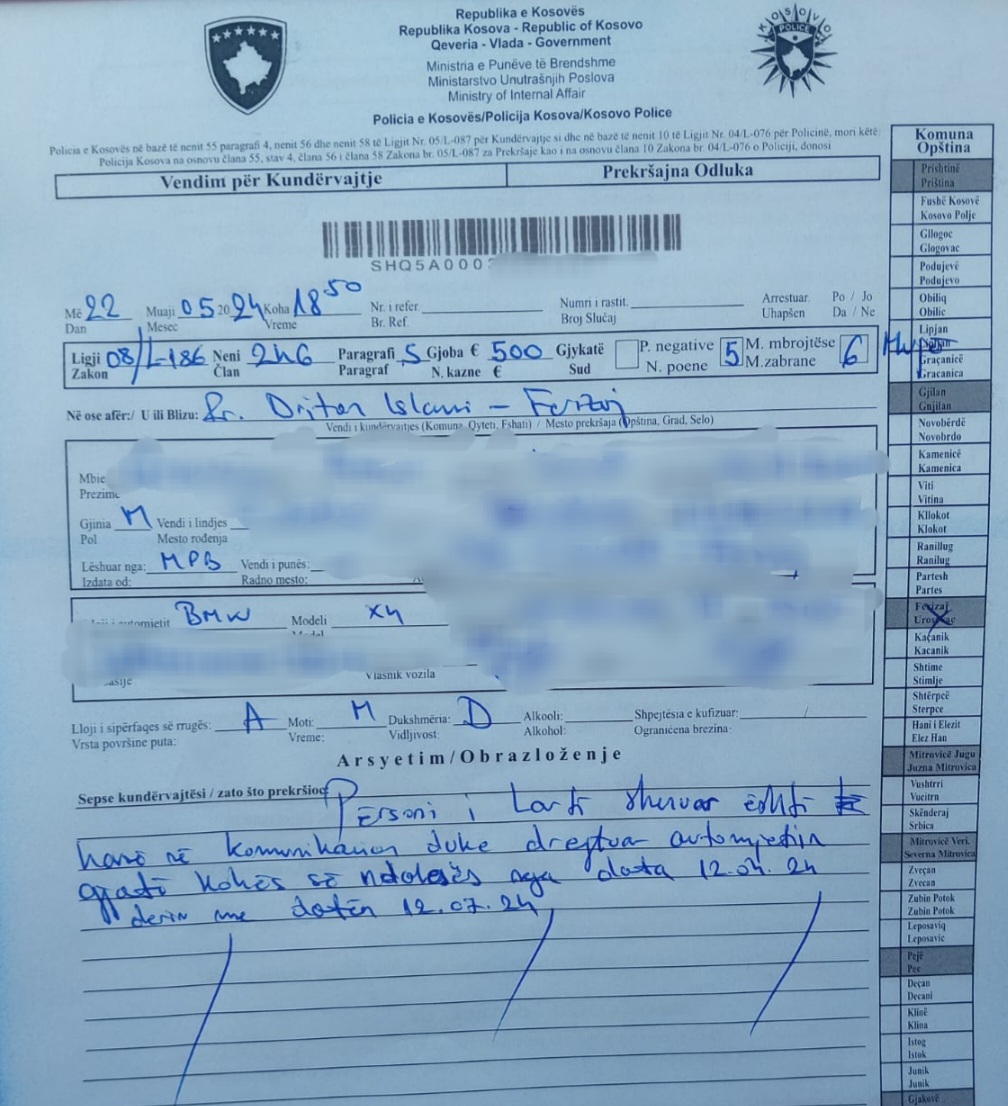 Republika e Kosovës
Republika Kosova - Republic of Kosovo
Qeveria - Vlada - Government
Ministria e Punëve të Brendshme
Ministarstvo Unutrašnjih Poslova
Ministry of Internal Affair
Policia e Kosovës/Policija Kosova/Kosovo Police
KOSOVO
POLICE
Policia e Kosovës në bazë të nenit 55 paragrafi 4, nenit 56 dhe nenit 58 të Ligjit Nr. 05/L-087 për Kundërvajtje si dhe në bazë të nenit 10 të Ligjit Nr. 04/L-076 për Policinë, mori këtë:
Policija Kosova na osnovu člana 55, stav 4, člana 56 i člana 58 Zakona br. 05/L-087 za Prekršaje kao i na osnovu člana 10 Zakona br. 04/L-076 o Policiji, donosi
Vendim për Kundërvajtje Prekršajna Odluka
SHQ5A000
Më 22 Muaji 05 2024 Koha 18 50 Nr. i refer. Numri i rastit. Arrestuar Po / Jo
Dan Mesec Vreme Br. Ref. Broj Slučaj Uhapšen Da / Ne
Ligji 08/L-186 Neni 246 Paragrafi 5 Gjoba € 500 Gjykatë P. negative 5 M. mbrojtëse 6
Zakon Član Paragraf N. kazne € Sud N. poene M.zabrane
Në ose afër:/ U ili Blizu: Rr. Dritan Islami - Ferizaj
Vendi i kundërvajtjes (Komuna, Qyteti, Fshati) / Mesto prekršaja (Opština, Grad, Selo)
Mbie
Prezime
Gjinia M Vendi i lindjes
Pol Mesto rođenja
Lëshuar nga: MPB Vendi i punës:
Izdata od: Radno mesto:
automjetit BMW Modeli X4
Vlasnik vozila
Lloji i sipërfaqes së rrugës: A Moti: M Dukshmëria: D Alkooli: Shpejtësia e kufizuar:
Vrsta površine puta: Vreme: Vidljivost: Alkohol: Ograničena brezina:
Arsyetim/Obrazloženje
Sepse kundërvajtësi / zato što prekršioc Personi i lartë shenuar është
hasë në komunikacion duke drejtuar automjetin
gjatë kohës së ndalesës nga data 12.04.24
deri me datën 12.07.24
Komuna
Opština
Prishtinë
Priština
Fushë Kosovë
Kosovo Polje
Gllogoc
Glogovac
Podujevë
Podujevo
Obiliq
Obilic
Lipjan
Graçanicë
Gracanica
Gjilan
Gnjilan
Novobërdë
Novobrdo
Kamenicë
Kamenica
Viti
Vitina
Kllokot
Klokot
Ranillug
Ranilug
Partesh
Partes
Ferizaj
Kaçanik
Kacanik
Shtime
Stimlje
Shtërpcë
Sterpce
Hani i Elezit
Elez Han
Mitrovicë Jugu
Juzna Mitrovica
Vushtrri
Vucitrn
Skënderaj
Srbica
Mitrovicë Veri.
Severna Mitrovica
Zveçan
Zvecan
Zubin Potok
Zubin Potok
Leposaviq
Leposavic
Pejë
Pec
Deçan
Decani
Klinë
Klina
Istog
Istok
Junik
Junik
Gjakovë